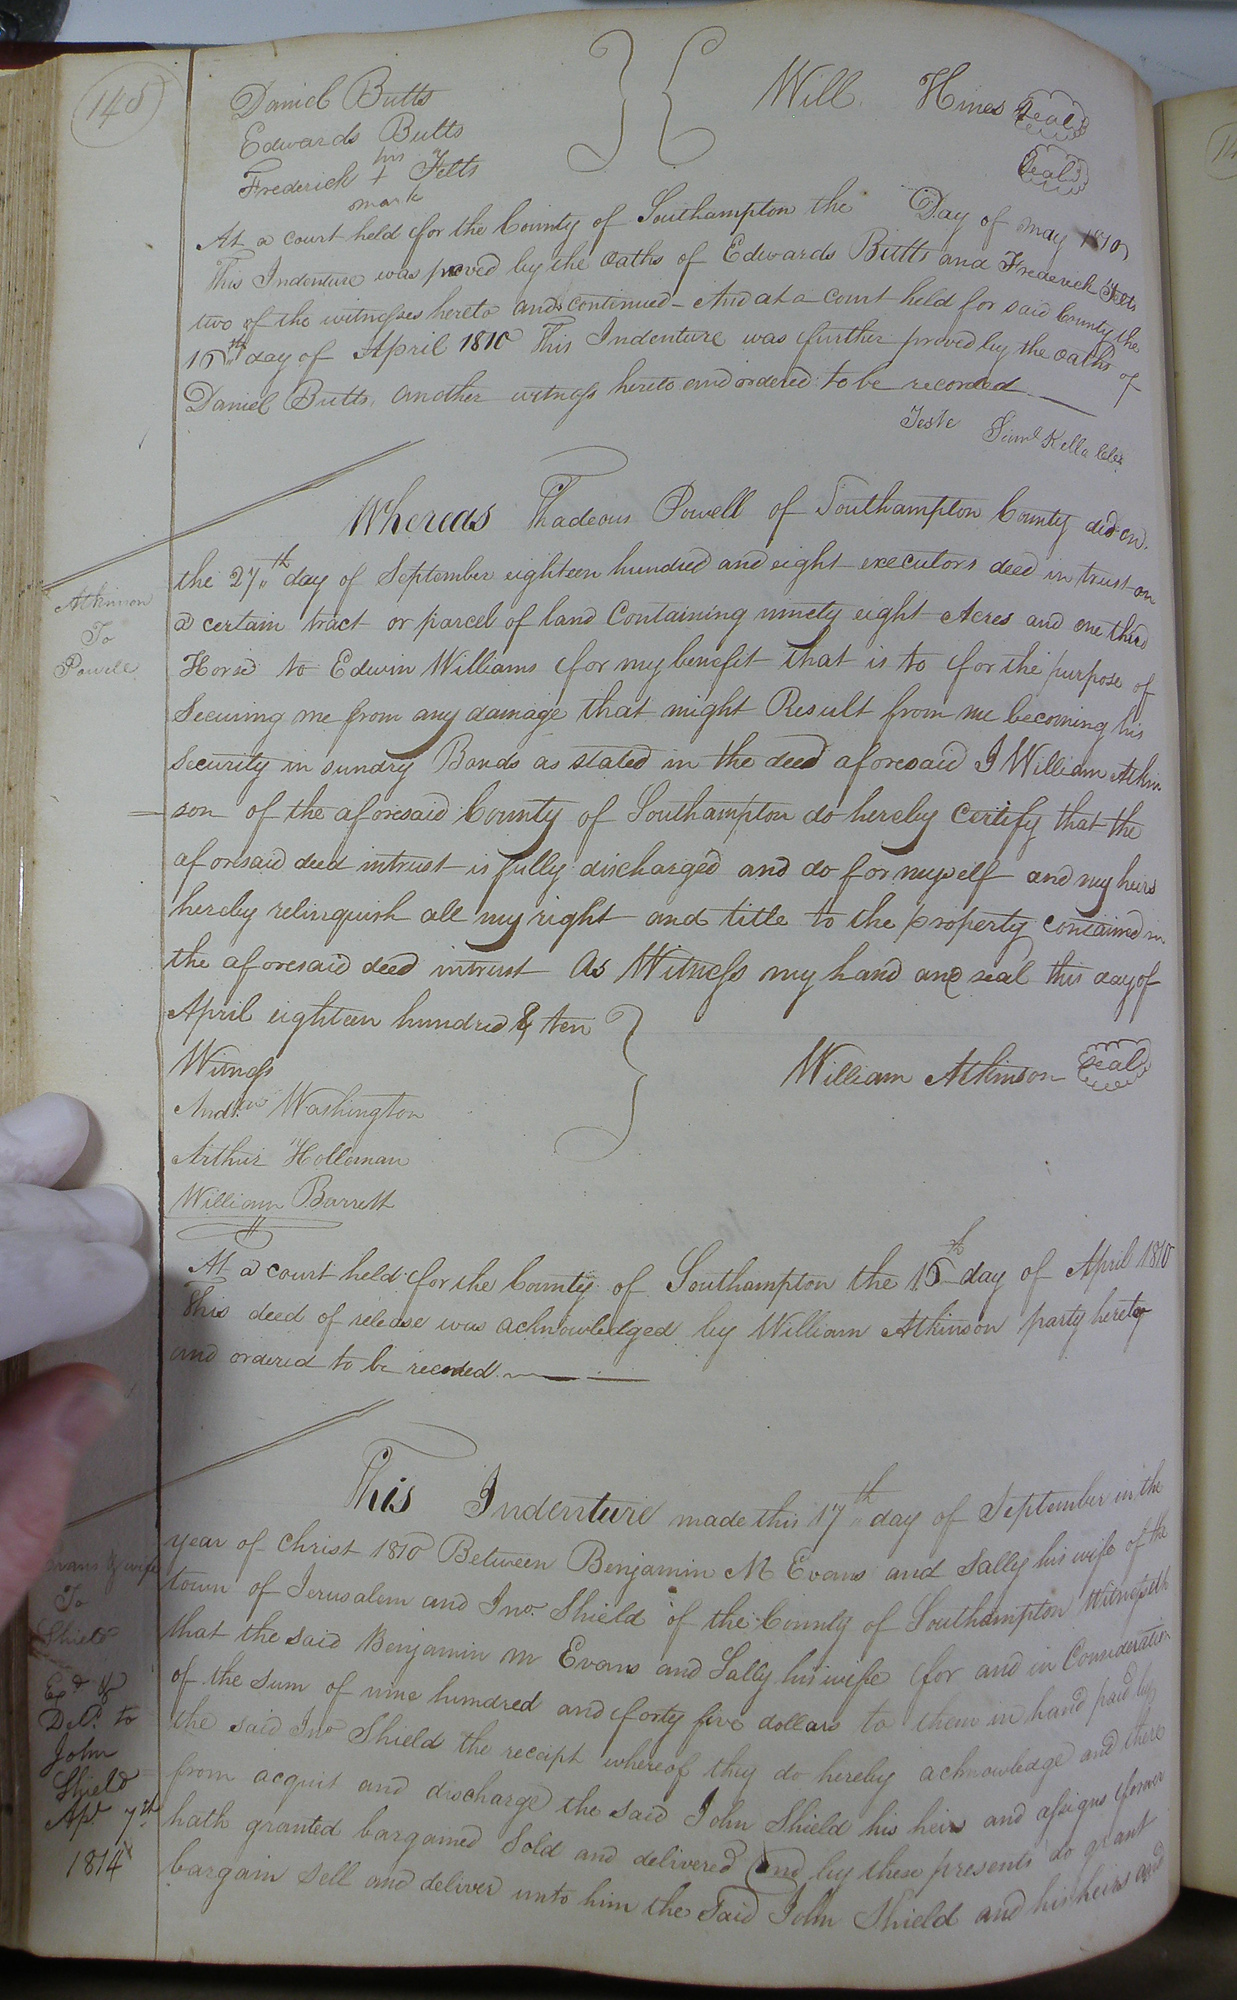 148
Daniel Butts
Edwards Butts
his
Frederick + Felts
mark
Will. Hines Seal
Seal
At a court held for the County of Southampton the Day of may 1810
This Indenture was proved by the oaths of Edwards Butts and Frederick Felts
two of the witnesses hereto and continued - And at a court held for said County the
16th day of April 1810 This Indenture was further proved by the oaths of
Daniel Butts another witness hereto and ordered to be recorded
Teste Saml Kello Clk
Atkinson
To
Powell
Whereas Thadeous Powell of Southampton County did on
the 27th day of September eighteen hundred and eight executors deed in trust on
a certain tract or parcel of land Containing ninety eight Acres and one third
Horse to Edwin Williams for my benefit that is to for the purpose of
Securing me from any damage that might Result from me becoming his
security in sundry Bonds as stated in the deed aforesaid I William Atkin
son of the aforesaid County of Southampton do hereby Certify that the
aforesaid deed intrust is fully discharged and do for myself and my heirs
hereby relinquish all my right and title to the property contained in
the aforesaid deed intrust As Witness my hand and seal this day of
April eighteen hundred & ten
Witness
William Atkinson Seal
Washington
Arthur Holloman
William Barrett
At a court held for the County of Southampton the 16th day of April 1810
This deed of release was acknowledged by William Atkinson party hereto
and ordered to be recorded
Evans & wife
To
Shield
Exd &
Deld. to
John
Shield
Apl. 7th
1814
This Indenture made this 17th day of September in the
year of Christ 1810 Between Benjamin M Evans and Sally his wife of the
town of Jerusalem and Jno. Shield of the County of Southampton Witnesseth
that the said Benjamin M Evans and Sally his wife for and in Consideration
of the sum of nine hundred and forty five dollars to them in hand paid by
the said Jno Shield the receipt whereof they do hereby acknowledge and there
from acquit and discharge the said John Shield his heirs and assigns forever
hath granted bargained Sold and delivered and by these presents do grant
bargain sell and deliver unto him the Said John Shield and his heirs and